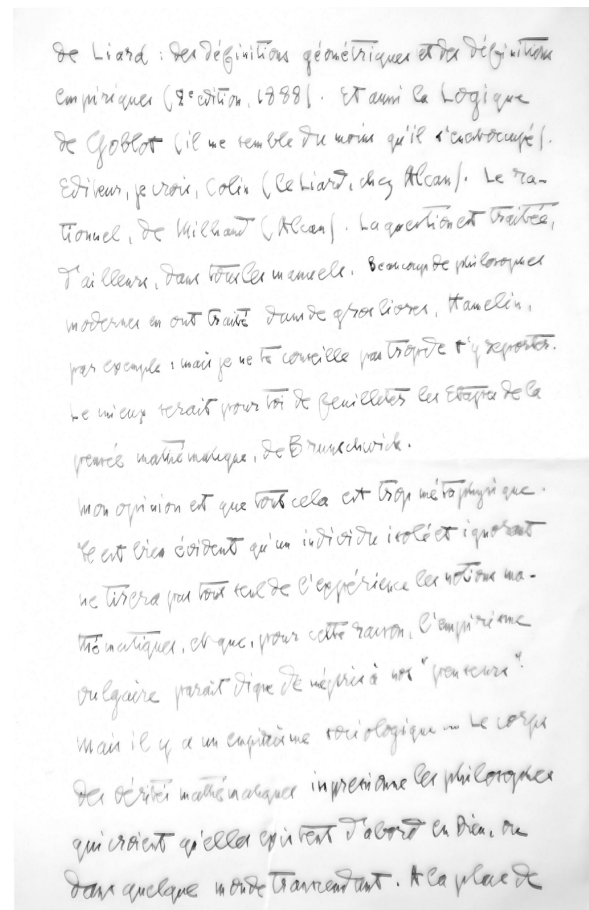 de Liard : des définitions géométriques et des définitions
empiriques (2e édition, 1888). Et aussi la Logique
de Goblot (il me semble du moins qu'il s'en est occupé).
Editeur, je crois, Colin (le Liard, chez Alcan). Le ra-
tionnel, de Milhaud (Alcan). La question est traitée,
d'ailleurs, dans tous les manuels. Beaucoup de philosophes
modernes en ont traité dans de gros livres, Hamelin,
par exemple : mais je ne te conseille pas trop de t'y reporter.
Le mieux serait pour toi de feuilleter les Etapes de la
pensée mathématique, de Brunschwick.
Mon opinion est que tout cela est trop métaphysique.
Il est bien évident qu'un individu isolé et ignorant
ne tirera pas tout seul de l'expérience les notions ma-
thématiques, et que, pour cette raison, l'empirisme
vulgaire paraît digne de mépris à nos "penseurs".
Mais il y a un empirisme sociologique — Le corps
des vérités mathématiques impressionne les philosophes
qui croient qu'elles existent d'abord en Dieu, ou
dans quelque monde transcendant. A la place de